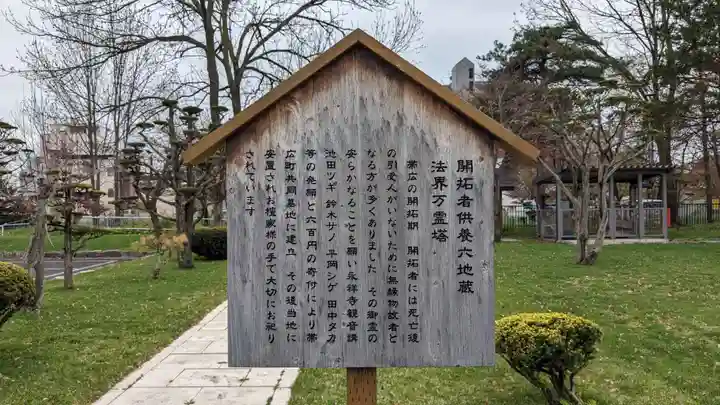 開拓者供養六地蔵
法界万霊塔
帯広の開拓期 開拓者には死亡後
の引受人がいないために無縁物故者と
なる方が多くありました その御霊の
安らかなることを願い永祥寺観音講
池田ツギ 鈴木サノ 平岡シゲ 田中タカ
等の発願と六百円の寄付により帯
広町共同墓地に建立 その後当地に
安置されお檀家様の手で大切にお祀り
されています